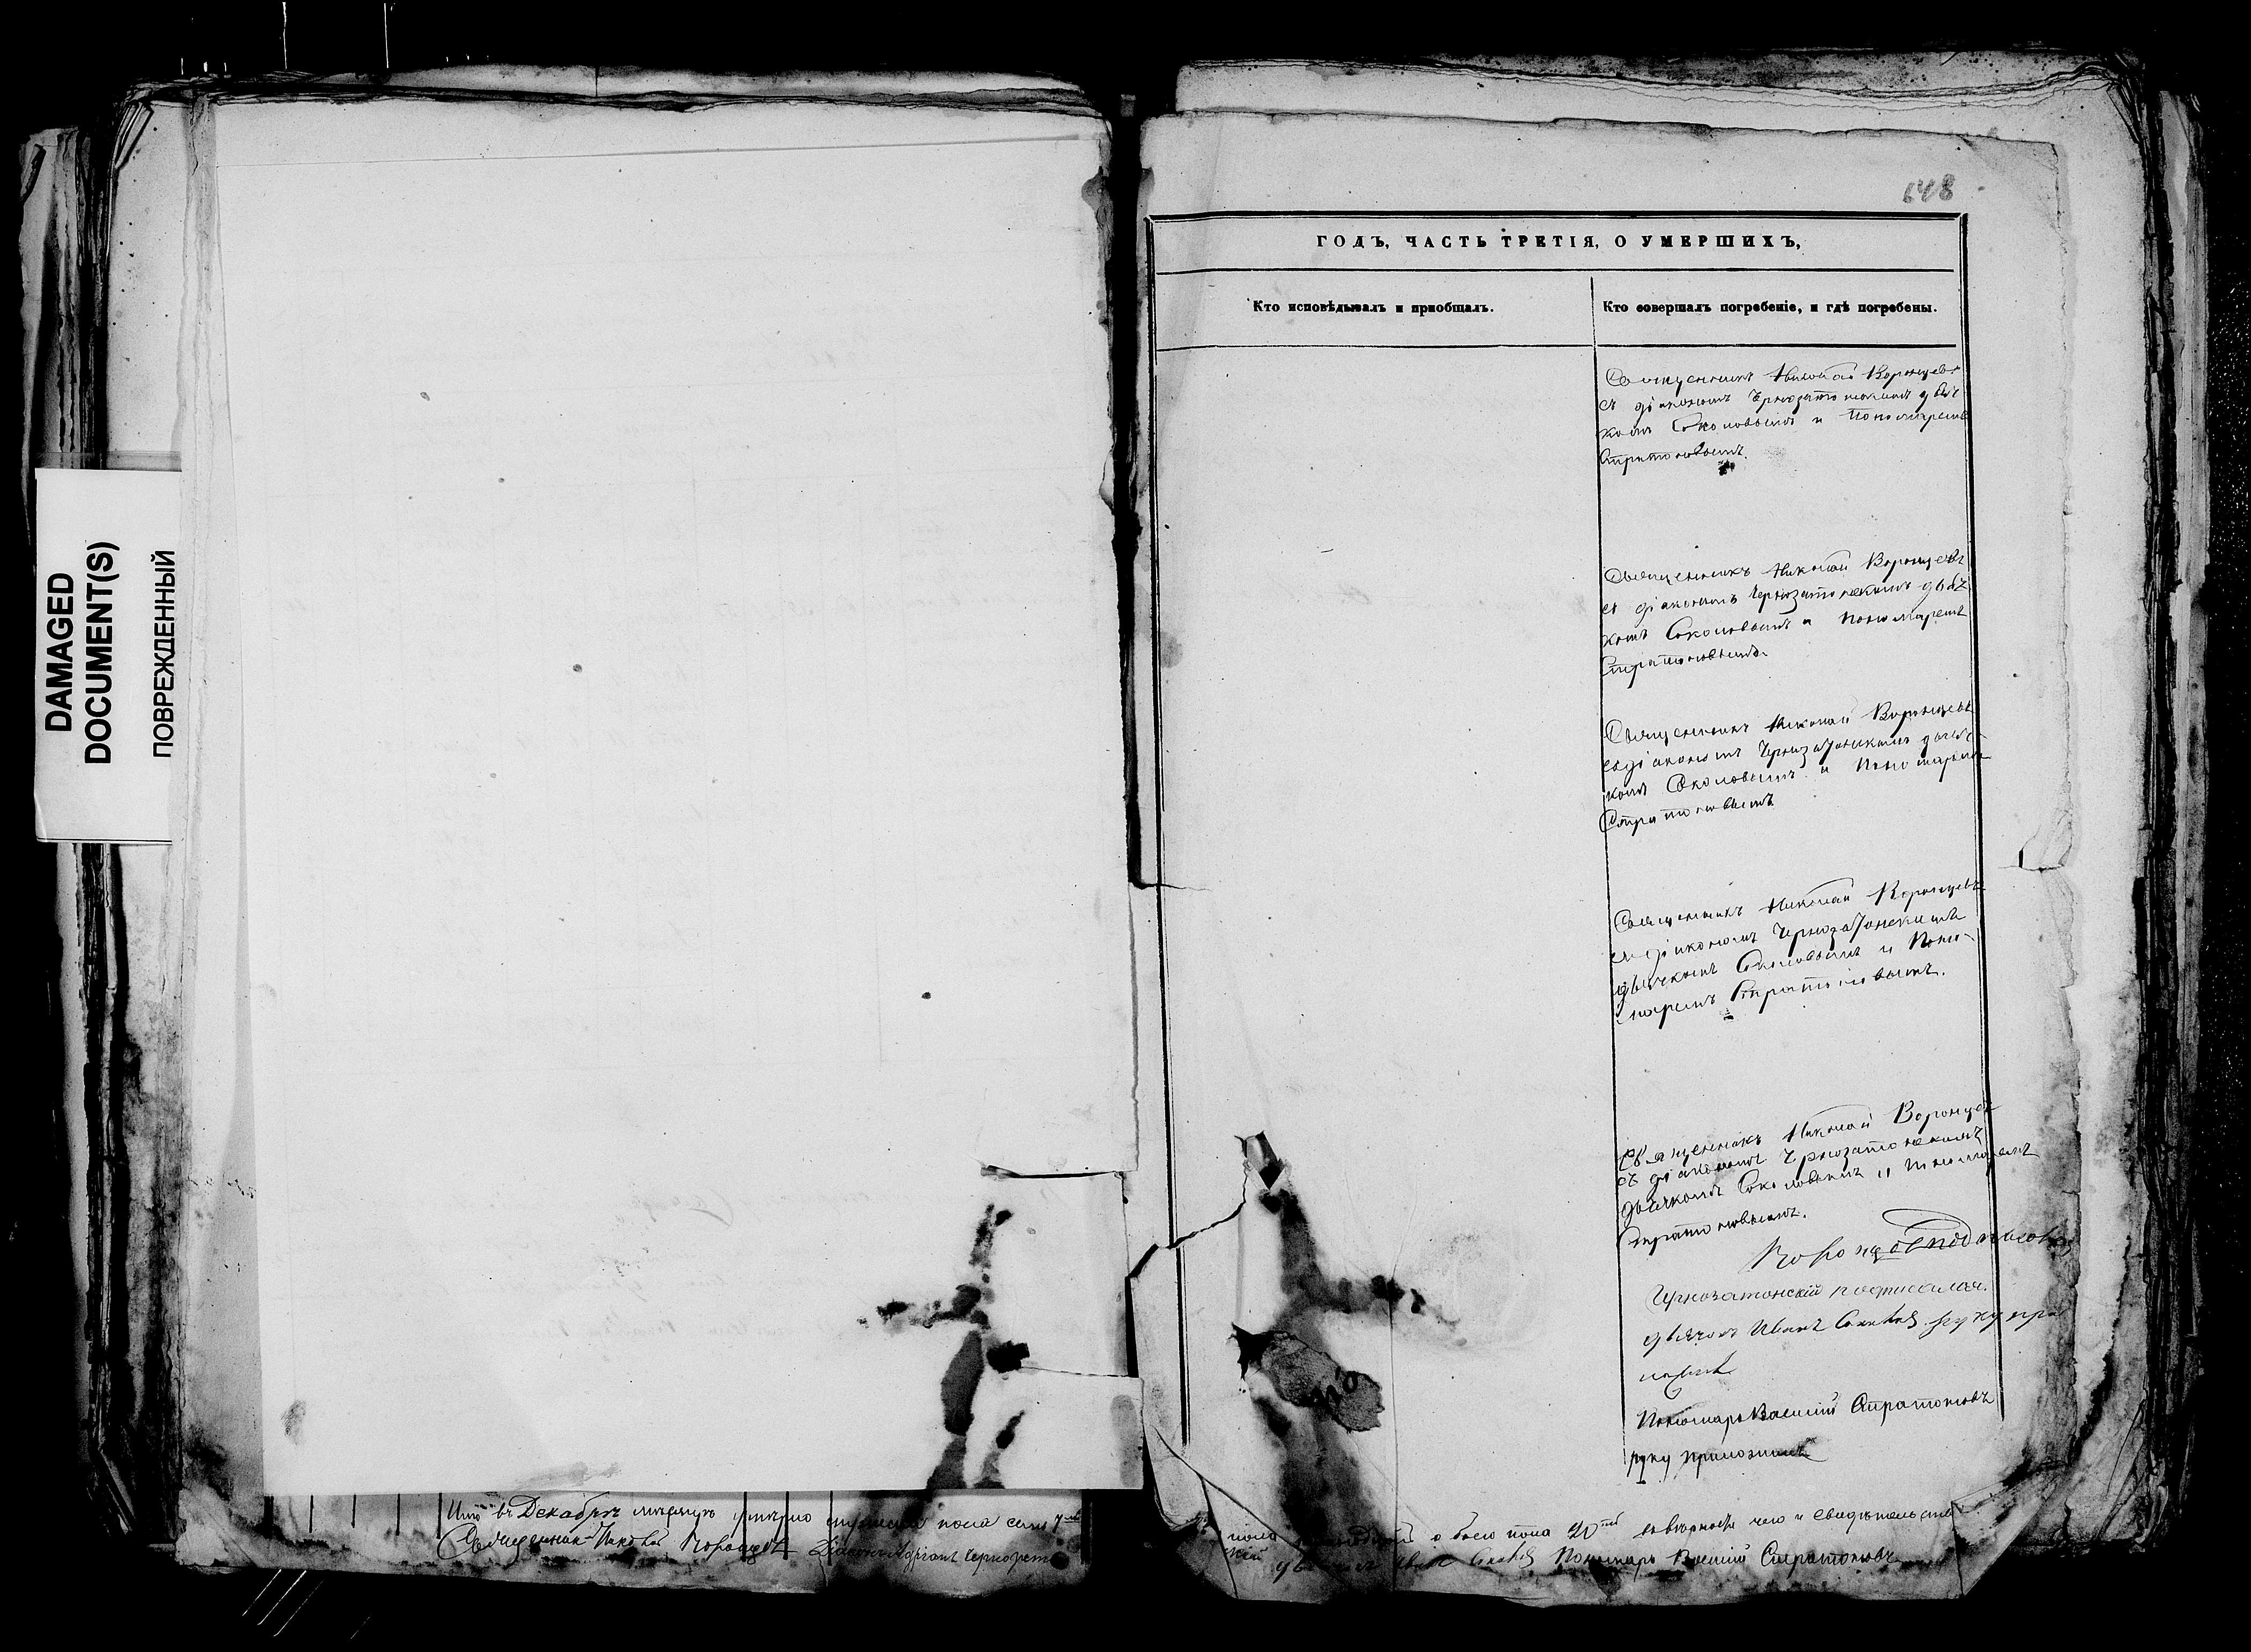 DAMAGED
DOCUMENT(S)
ПОВРЕЖДЕННЫЙ
648
ГОДЪ, ЧАСТЬ ТРЕТІЯ, О УМЕРШИХЪ,
Кто исповѣдывалъ и пріобщалъ.
Кто совершалъ погребеніе, и гдѣ погребены.
Священникъ Николай Воронцевъ
съ діакономъ Чернозатонскимъ дьяч
комъ Соколовымъ и Пономаремъ
Стратоновымъ.
Священникъ Николай Воронцевъ
съ діакономъ Чернозатонскимъ дьяч
комъ Соколовымъ и пономаремъ
Стратоновымъ.
Священникъ Николай Воронцевъ
съ діакономъ Чернозатонскимъ дьяч
комъ Соколовымъ и Пономаремъ
Стратоновымъ
Священникъ Николай Воронцевъ
съ діакономъ Чернозатонскимъ
дьячкомъ Соколовымъ и Поно-
маремъ Стратоновымъ.
Священникъ Николай Воронцевъ
съ діакономъ Чернозатонскимъ
дьячкомъ Соколовымъ и Пономаремъ
Стратоновымъ.
Чернозатонскій подписался.
дьячокъ Иванъ руку при
Пономарь Василій Стратоновъ
руку приложилъ
въ Декабрѣ мѣсяцѣ умерло пола семь
Священник Николай Діаконъ
пола обоего пола 20 въ вѣрности чего и свидѣтельств
Пономарь Василій Стратоновъ